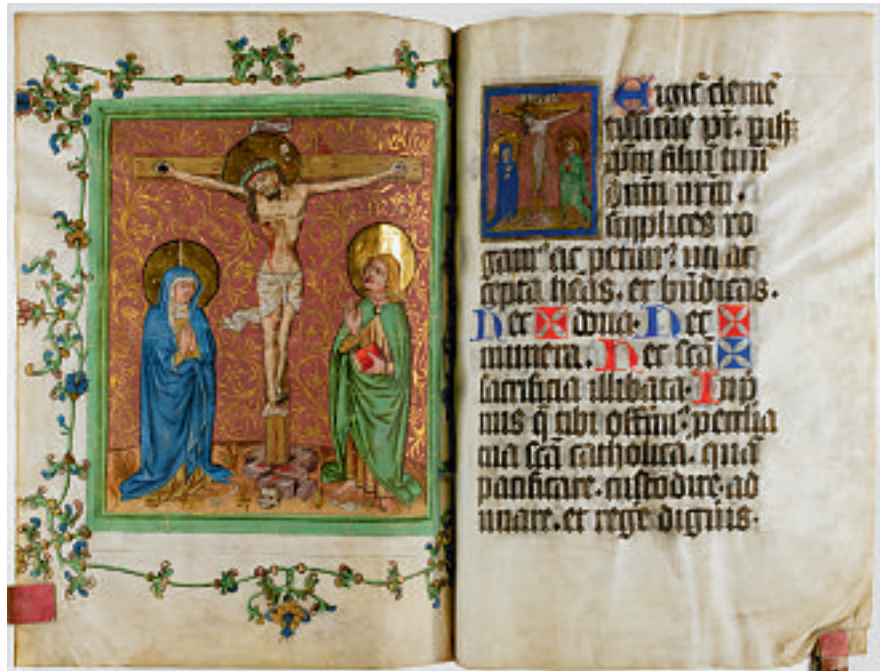 Eigit᷒ clemē
tissime pr̄. p ihm
xpm filiū tuū
dnm nrm.
supplices ro
gam⁹ ac petim⁹. uti ac
cepta hēas. et bn̄dicas.
Hec ✠ dona. Hec ✠
munera. Hec scā ✠
sacrificia illibata. Inp
mis q̄ tibi offerim⁹. p ecclia
tua scā catholica. quā
pacificare. custodire. ad
unare. et rege digneris.